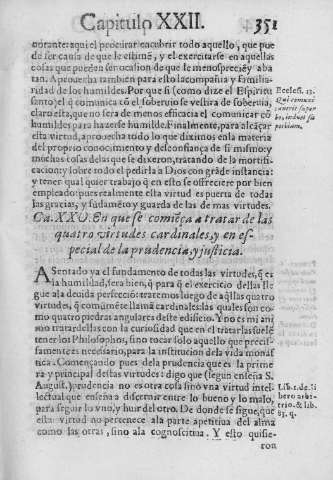 Capitulo XXII. 351
norante: aqui el procurar encubrir todo aquello, que pue
de ser causa de que le estimē, y el exercitarse en aquellas
cosas que pueden ser ocasion de que le menosprecien y aba
tan. Aprouecha tambien para esto la compañia y familia-
ridad de los humildes. Por que si (como dize el Espiritu
santo) el q̄ comunica cō el soberuio se vestira de soberuia,
claro esta, que no sera de menos eficacia el comunicar cō
humildes para hazerse humilde. Finalmente, para alcāçar
esta virtud, aprouecha todo lo que diximos en la materia
del proprio conocimiento y desconfiança de si mismo; y
muchos cosas de las que se dixeron, tratando de la mortifi-
cacion: y sobre todo el pedirla a Dios con grāde instancia:
y tener qual quier trabajo q̄ en esto se ofreciere por bien
empleado: pues realmente esta virtud es puerta de todas
las gracias, y fundamēto y guarda de las de mas virtudes.
Eccles. 13.
Qui comuni
cauerit super
bo, induet su
perbiam.
Ca. XXV. En que se comiēça a tratar de las
quatro virtudes cardinales, y en es-
pecial de la prudencia, y justicia.
ASentado ya el fundamento de todas las virtudes, q̄ es
la humildad, sera bien, q̄ para q̄ el exercicio dellas lle
gue a la deuida perfecciō: tratemos luego de aq̄llas quatro
virtudes, q̄ comūmēte llamā cardinales: las quales son co-
mo quatro piedras angulares deste edificio. Y no es mi ani
mo tratar dellas con la curiosidad que en el tratarlas suelē
tener los Philosophos, sino tocar solo aquello que precis-
samente es necesario, para la institucion de la vida monas
tica. Començando pues dela prudencia que es la prime
ra y principal destas virtudes: digo que (segun enseña S.
August.) prudencia no es otra cosa sinō vna virtud inte-
lectual que enseña a discernir entre lo bueno y lo malo,
para seguir lo vno, y huir del otro. De donde se sigue, que
esta virtud no pertenece ala parte apetitiua del alma
como las otras, sino ala cognoscitiua. Y esto quisie-
ron
Lib. 1. de li
bero arbi-
trio, & lib.
83. q.